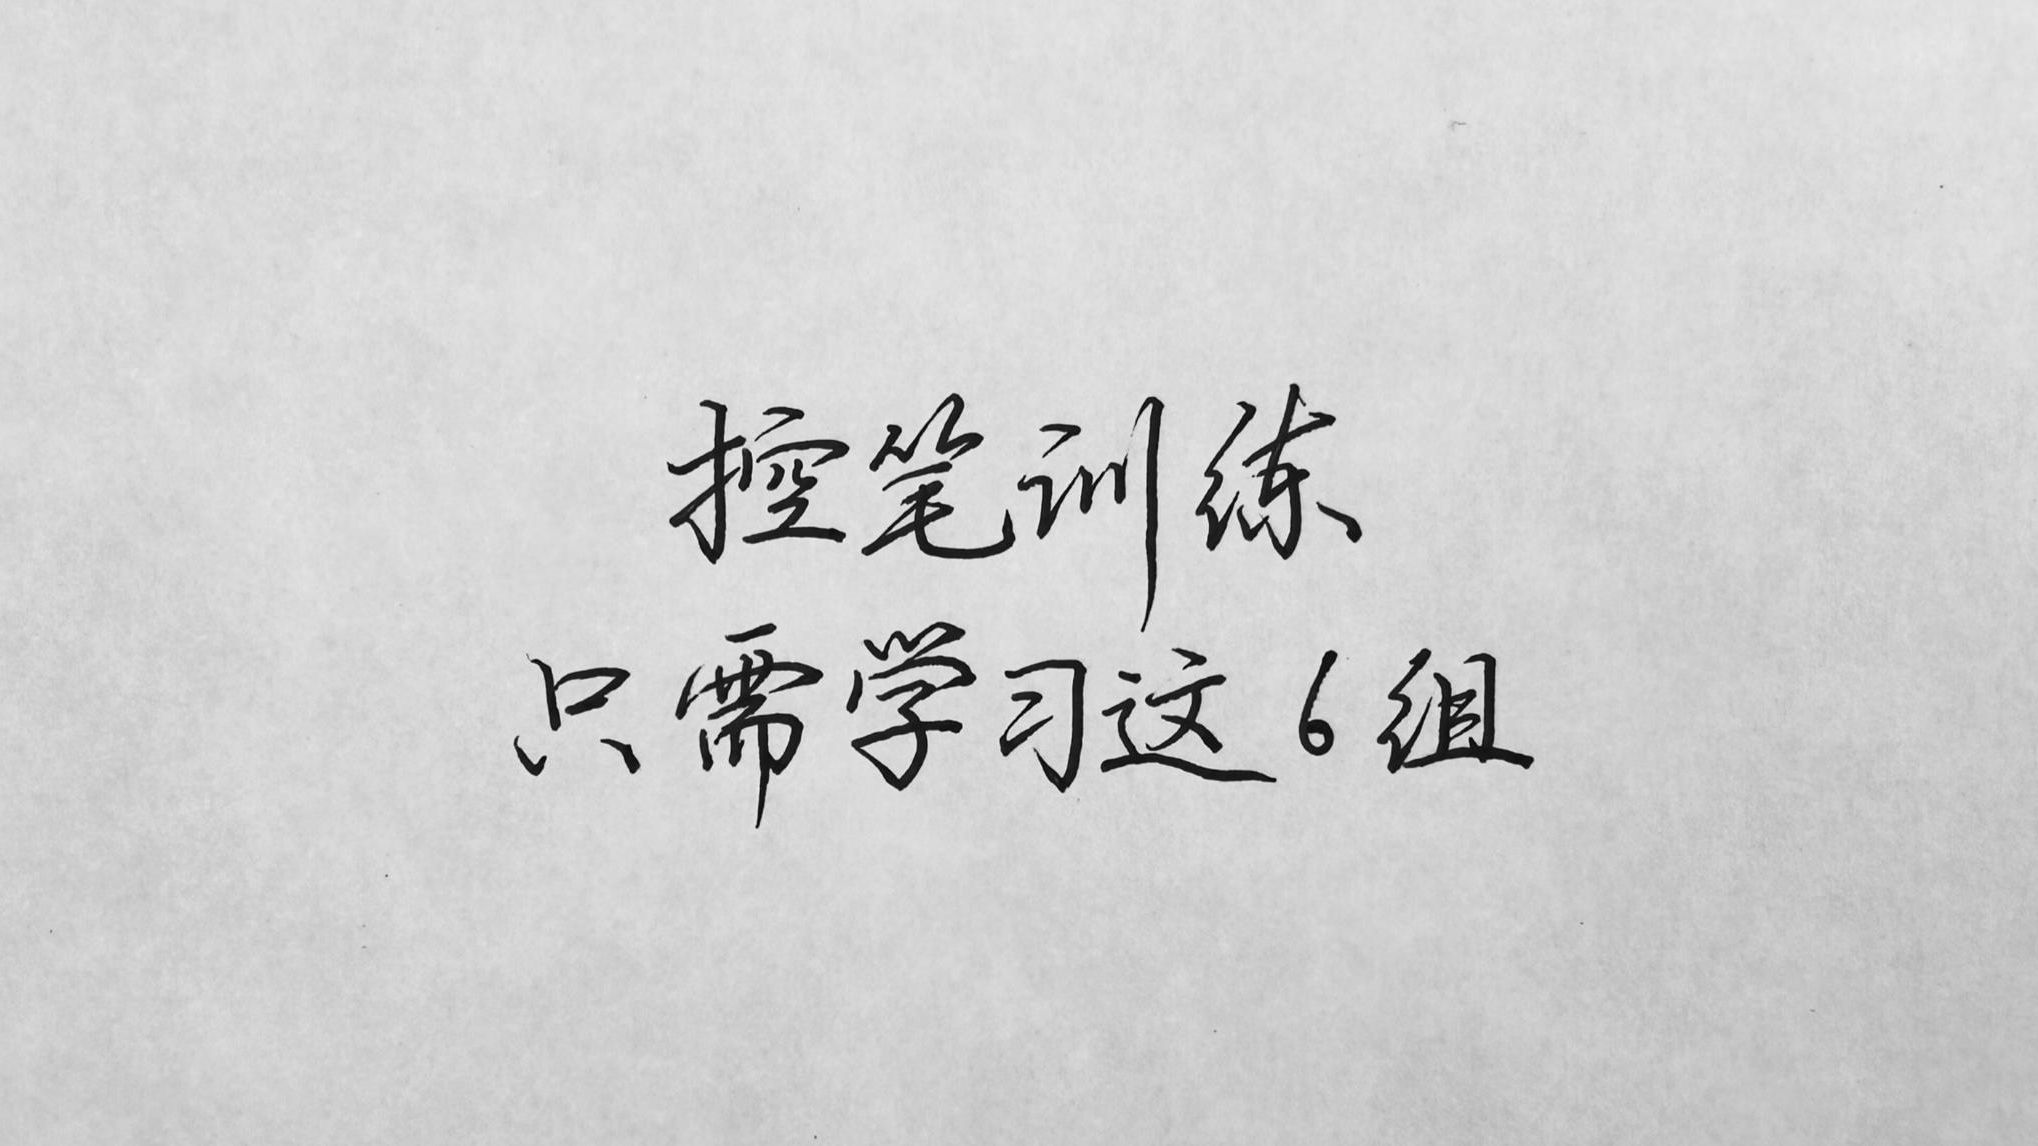 控笔训练
只需学习这6组